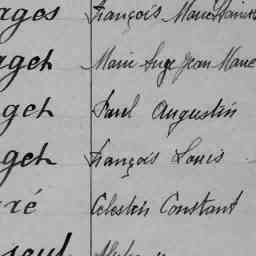 ages François Marie
get Marie Ange Jean Marie
get Paul Augustin
get François Louis
ré Célestin Constant